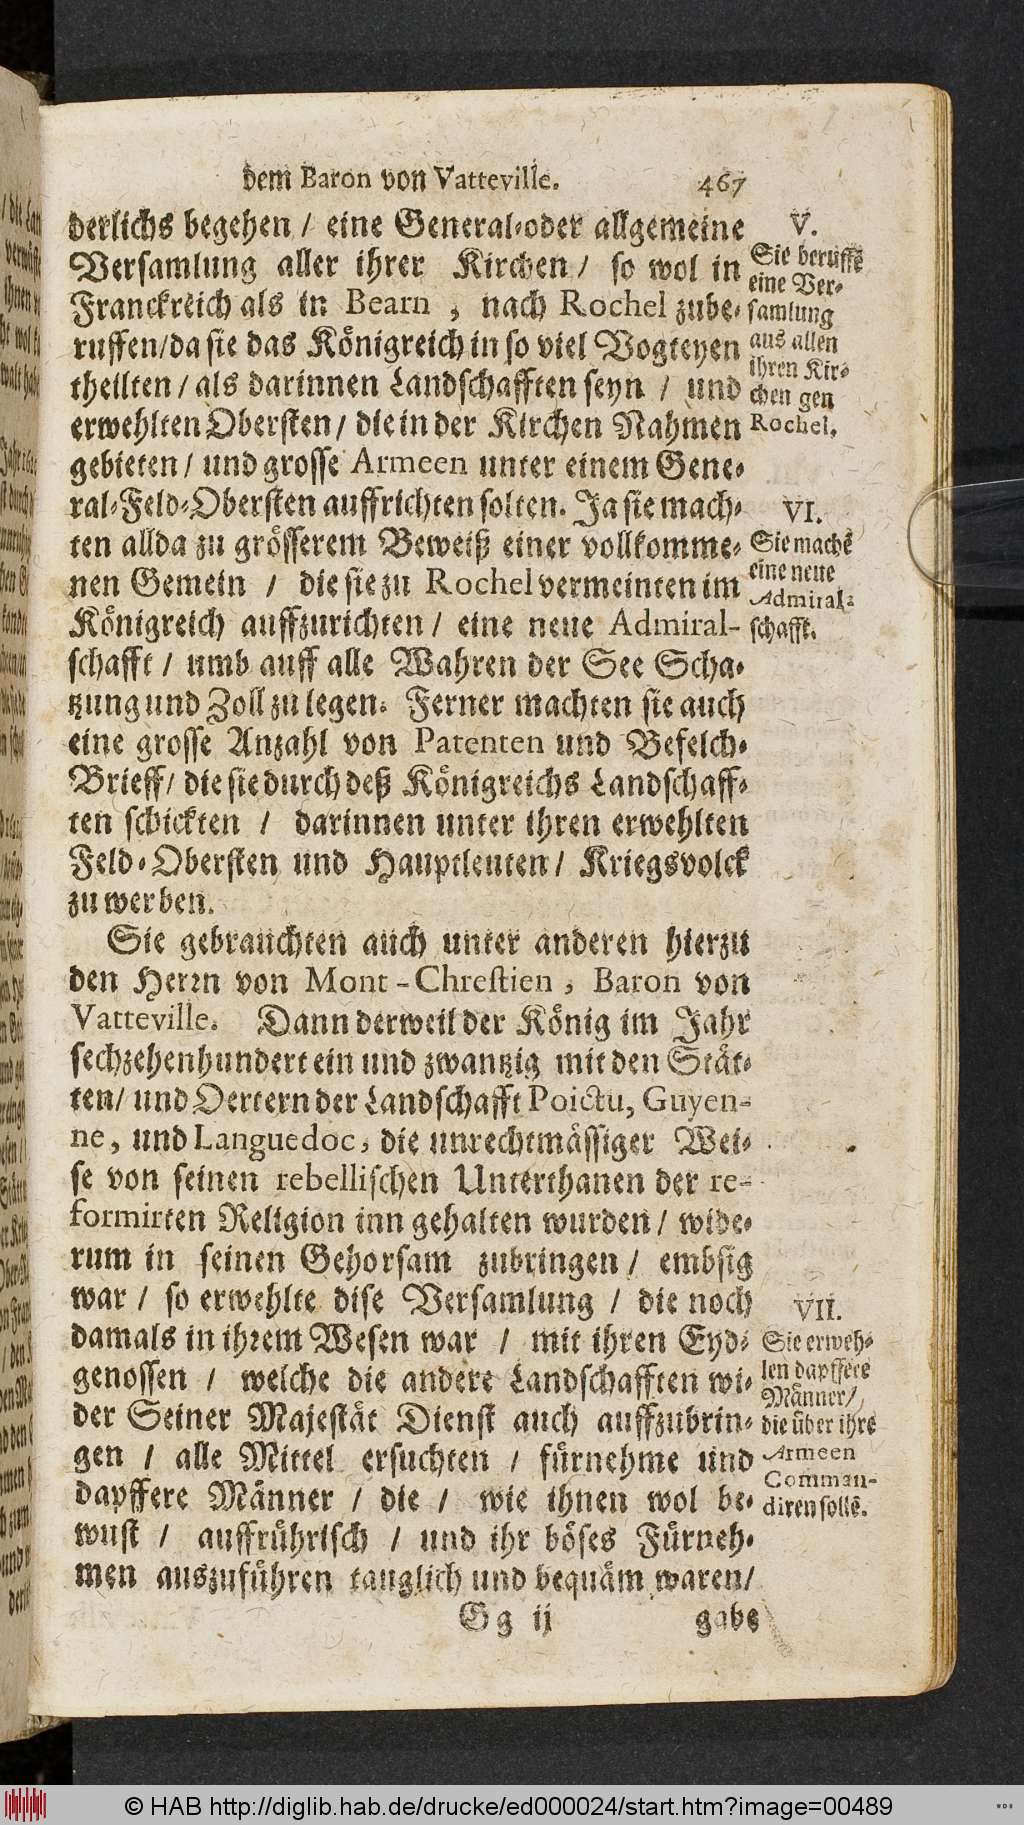 dem Baron von Vatteville. 467
derlichs begehen / eine General-oder allgemeine
Versamlung aller ihrer Kirchen / so wol in
Franckreich als in Bearn , nach Rochel zube-
ruffen/da sie das Königreich in so viel Vogteyen
theilten / als darinnen Landschafften seyn / und
erwehlten Obersten / die in der Kirchen Nahmen
gebieten / und grosse Armeen unter einem Gene-
ral-Feld-Obersten auffrichten solten. Ja sie mach-
ten allda zu grösserem Beweiß einer vollkomme-
nen Gemein / die sie zu Rochel vermeinten im
Königreich auffzurichten / eine neue Admiral-
schafft / umb auff alle Wahren der See Scha-
tzung und Zoll zu legen. Ferner machten sie auch
eine grosse Anzahl von Patenten und Befelch-
Brieff / die sie durch deß Königreichs Landschaff-
ten schickten / darinnen unter ihren erwehlten
Feld-Obersten und Hauptleuten / Kriegsvolck
zu werben.
Sie gebrauchten auch unter anderen hierzu
den Herrn von Mont-Chrestien , Baron von
Vatteville. Dann derweil der König im Jahr
sechzehenhundert ein und zwantzig mit den Stät-
ten/ und Oertern der Landschafft Poictu, Guyen-
ne, und Languedoc, die unrechtmässiger Wei-
se von seinen rebellischen Unterthanen der re-
formirten Religion inn gehalten wurden / wide-
rum in seinen Gehorsam zubringen / embsig
war / so erwehlte dise Versamlung / die noch
damals in ihrem Wesen war / mit ihren Eyd-
genossen / welche die andere Landschafften wi-
der Seiner Majestät Dienst auch auffzubrin-
gen / alle Mittel ersuchten / fürnehme und
dapffere Männer / die / wie ihnen wol be-
wust / auffrührisch / und ihr böses Fürneh-
men auszuführen tauglich und bequäm waren /
Gg ij gabe
V.
Sie beruffē
eine Ver-
samlung
aus allen
ihren Kir-
chen gen
Rochel.
VI.
Sie machē
eine neue
Admiral-
schafft.
VII.
Sie erweh-
len dapffere
Männer/
die über ihre
Armeen
Comman-
diren sollē.
© HAB http://diglib.hab.de/drucke/ed000024/start.htm?image=00489